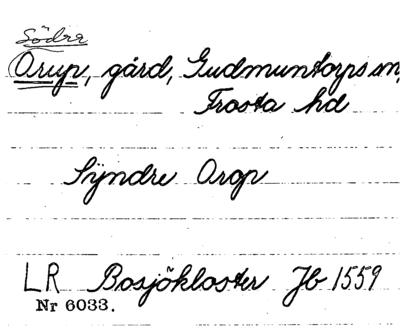 Södra
Orup, gård, Gudmuntorps sn,
Frosta hd
Syndre Orop
LR Bosjökloster Jb 1559
Nr 6033.